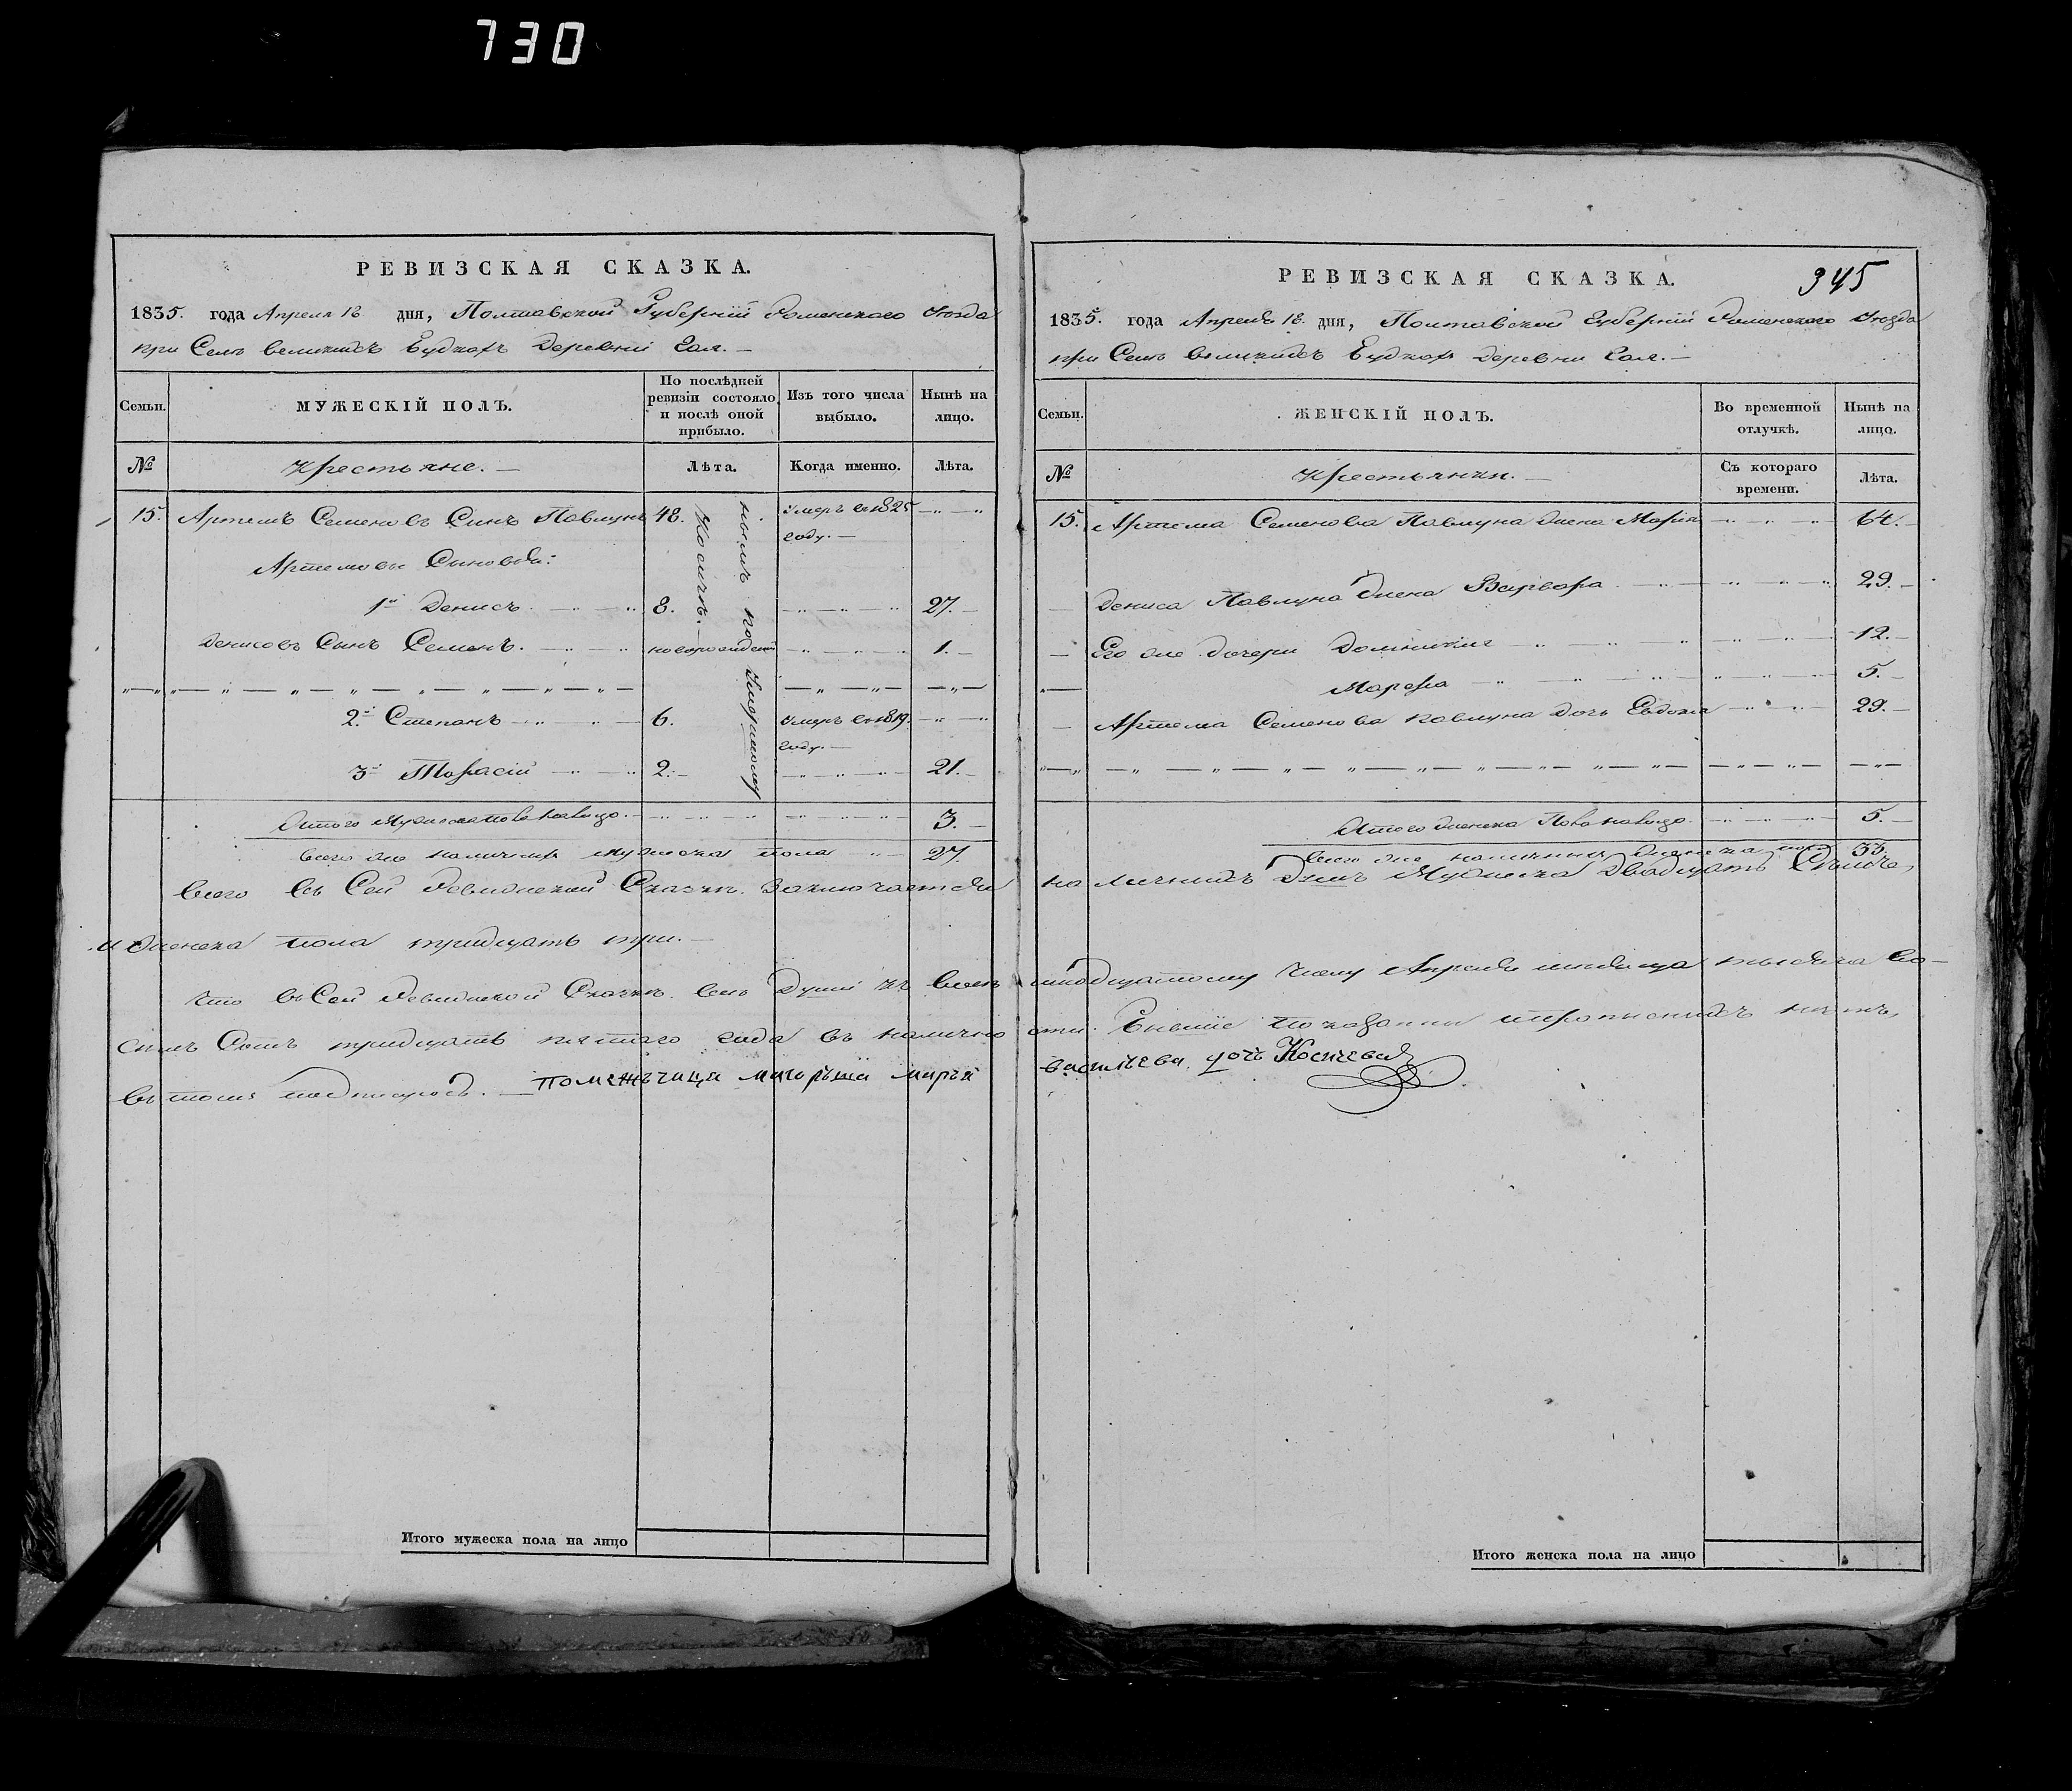 730
РЕВИЗСКАЯ СКАЗКА.
1835. года Апреля 18 дня, Полтавской Губерніи Роменского Уезда
при Селе великихъ Будкахъ деревни Гая.
Семьи.
МУЖЕСКІЙ ПОЛЪ.
По послѣдней ревизіи состояло и послѣ оной прибыло.
Изъ того числа выбыло.
Нынѣ на лицо.
№ Крестьяне. Лѣта. Когда именно. Лѣта.
15. Артемъ Семеновъ Синъ Павлунъ 48. умеръ в 1825 году.
Артемовы Синовья:
1й Денисъ 8. 27.
Денисовъ Сынъ Семенъ. новорожденый 1.
2й Степанъ 6. умеръ в 1819 году.
3й Тарасій 2. 21.
Итого мужеска пола налицо. 3.
Всего же наличныхъ мужеска пола 27.
РЕВИЗСКАЯ СКАЗКА. 345
1835. года Апреля 18. дня, Полтавской Губерніи Роменского Уезда
при Селе великихъ Будкахъ деревни Гая.
Семьи.
ЖЕНСКІЙ ПОЛЪ.
Во временной отлучкѣ.
Нынѣ на лицо.
№ Крестьянки. Съ котораго времени. Лѣта.
15. Артема Семенова Павлуна жена Марія 64.
Дениса Павлуна жена Варвара 29.
Его же дочери Домникия 12.
Марфа 5.
Артема Семенова павлуна дочь Евдокия 29.
Итого женска Пола налицо. 5.
Всего же наличныхъ женска пола 33.
Всего въ Сей Ревизской Сказке заключается наличнихъ душъ Мужеска двадцать Семь,
и женска пола тридцать три.
Что въ Сей Ревизской Сказке все души къ восемнадцатому числу Апреля месяца тысяча во-
семъ Сотъ тридцать пятого года въ наличности бывшие показанны и прописнихъ нетъ,
въ томъ подписуюсь. помежъчица маіоръша маръя васильева дочъ Косичева
Итого мужеска пола на лицо
Итого женска пола на лицо